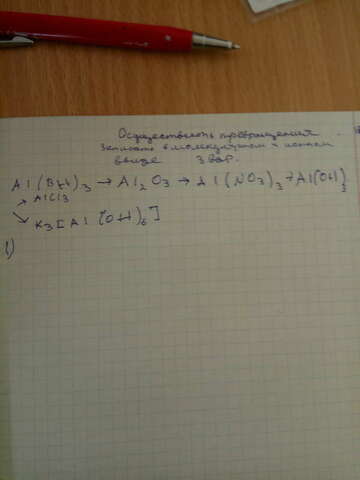 Осуществить превращения.
Записать в молекулярном и ионном
виде 3 вар.
Al(OH)3 → Al2O3 → Al(NO3)3 → Al(OH)3
→ AlCl3
↘ K3[Al(OH)6]
1)